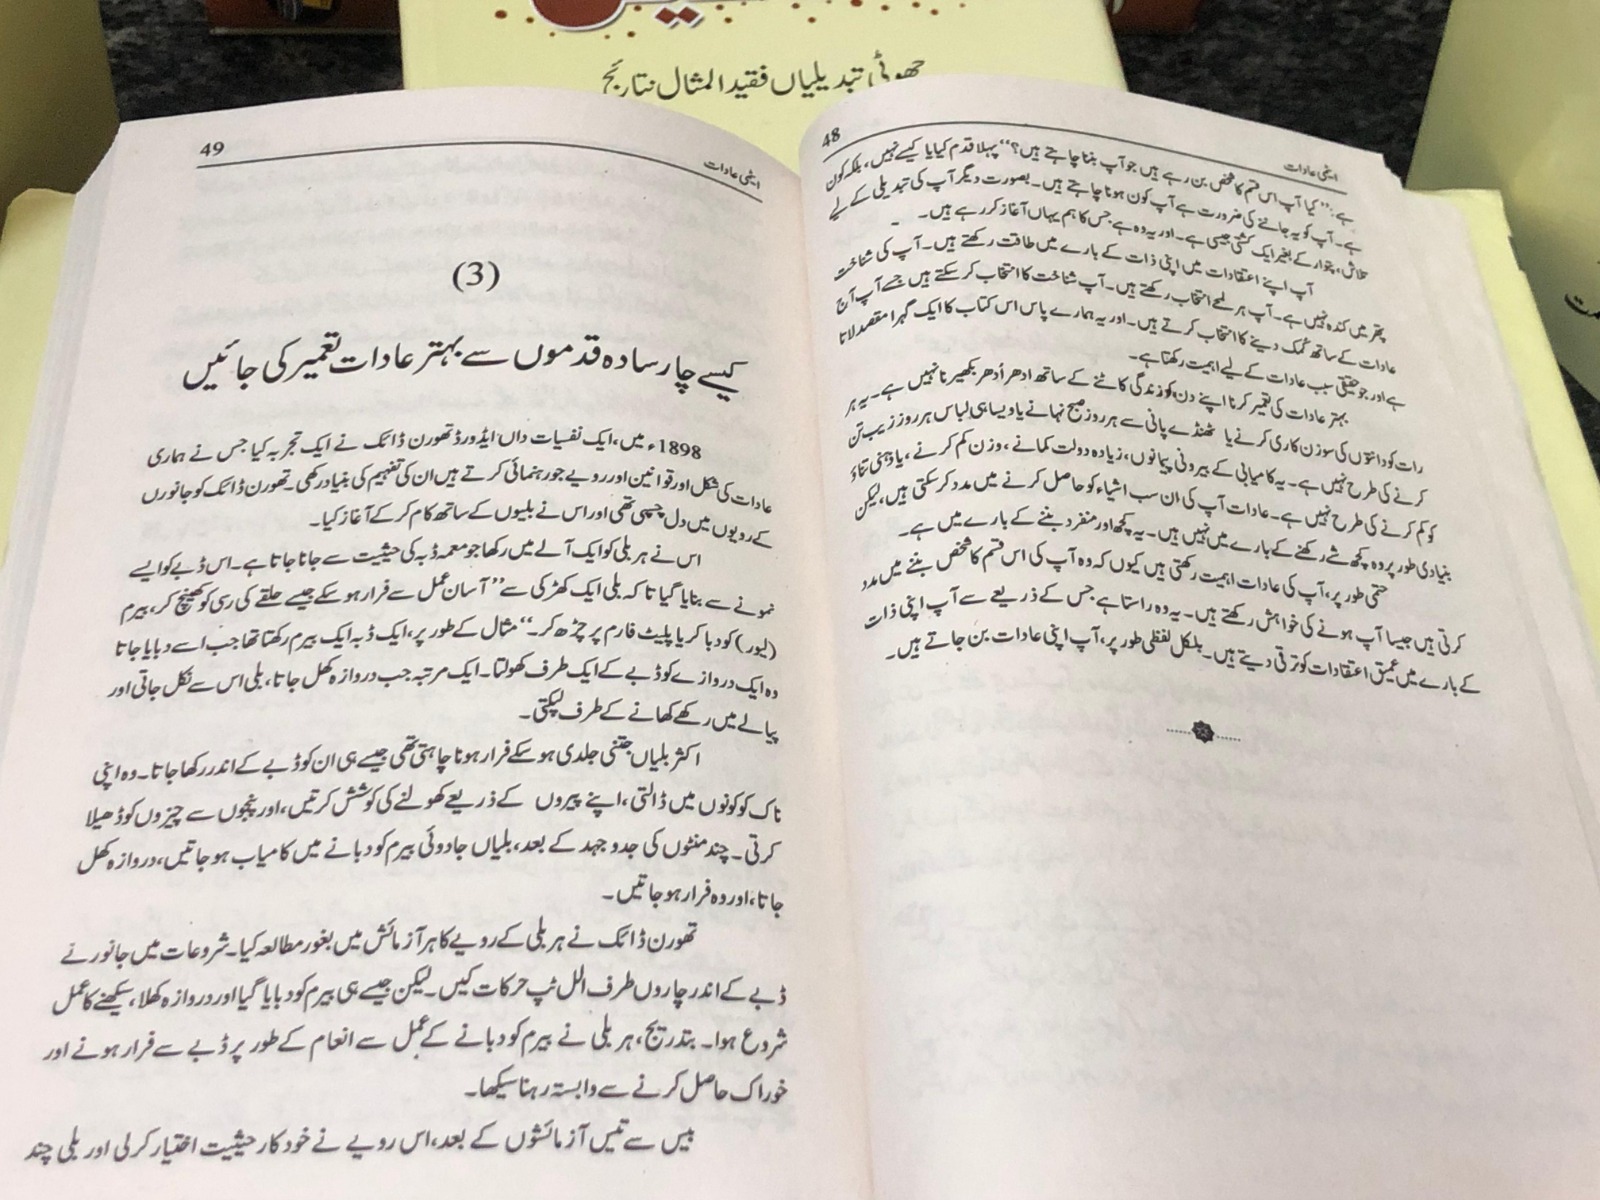 چھوٹی تبدیلیاں فقید المثال نتائج
48
ایٹمی عادات
ہے: ’’کیا آپ اس قسم کا شخص بن رہے ہیں جو آپ بننا چاہتے ہیں؟‘‘ پہلا قدم کیا یا کیسے نہیں، بلکہ کون
ہے۔ آپ کو یہ جاننے کی ضرورت ہے آپ کون ہونا چاہتے ہیں۔ بصورت دیگر آپ کی تبدیلی کے لیے
تلاش، پتوار کے بغیر ایک کشتی جیسی ہے۔ اور یہ وہ ہے جس کا ہم یہاں آغاز کر رہے ہیں۔
آپ اپنے اعتقادات میں اپنی ذات کے بارے میں طاقت رکھتے ہیں۔ آپ کی شناخت
پتھر میں کندہ نہیں ہے۔ آپ ہر لمحے انتخاب رکھتے ہیں۔ آپ شناخت کا انتخاب کر سکتے ہیں جسے آپ آج
عادات کے ساتھ کمک دینے کا انتخاب کرتے ہیں۔ اور یہ ہمارے پاس اس کتاب کا ایک گہرا مقصد لاتا
ہے اور جو حقیقی سبب عادات کے لیے اہمیت رکھتا ہے۔
بہتر عادات کی تعمیر کرنا اپنے دن کو زندگی کاٹنے کے ساتھ ادھر اُدھر بکھیرنا نہیں ہے۔ یہ ہر
رات کو دانتوں کی سوزن کاری کرنے یا ٹھنڈے پانی سے ہر روز صبح نہانے یا ویسا ہی لباس ہر روز زیب تن
کرنے کی طرح نہیں ہے۔ یہ کامیابی کے بیرونی پیمانوں، زیادہ دولت کمانے، وزن کم کرنے، یا ذہنی تناؤ
کو کم کرنے کی طرح نہیں ہے۔ عادات آپ کی ان سب اشیاء کو حاصل کرنے میں مدد کر سکتی ہیں، لیکن
بنیادی طور پر وہ کچھ شے رکھنے کے بارے میں نہیں ہیں۔ یہ کچھ اور منفرد بننے کے بارے میں ہے۔
حتمی طور پر، آپ کی عادات اہمیت رکھتی ہیں کیوں کہ وہ آپ کی اس قسم کا شخص بننے میں مدد
کرتی ہیں جیسا آپ ہونے کی خواہش رکھتے ہیں۔ یہ وہ راستا ہے جس کے ذریعے سے آپ اپنی ذات
کے بارے میں عمیق اعتقادات کو ترقی دیتے ہیں۔ بلکل لفظی طور پر، آپ اپنی عادات بن جاتے ہیں۔
49
ایٹمی عادات
(3)
کیسے چار سادہ قدموں سے بہتر عادات تعمیر کی جائیں
1898ء میں، ایک نفسیات داں ایڈورڈ تھورن ڈائک نے ایک تجربہ کیا جس نے ہماری
عادات کی شکل اور قوانین اور رویے جو رہنمائی کرتے ہیں ان کی تفہیم کی بنیاد رکھی۔ تھورن ڈائک کو جانوروں
کے رویوں میں دل چسپی تھی اور اس نے بلیوں کے ساتھ کام کر کے آغاز کیا۔
اس نے ہر بلی کو ایک آلے میں رکھا جو معمہ ڈبہ کی حیثیت سے جانا جاتا ہے۔ اس ڈبے کو ایسے
نمونے سے بنایا گیا تا کہ بلی ایک کھڑکی سے ’’آسان عمل سے فرار ہو سکے جیسے حلقے کی رسی کو کھینچ کر، بیرم
(لیور) کو دبا کر یا پلیٹ فارم پر چڑھ کر۔‘‘ مثال کے طور پر، ایک ڈبہ ایک بیرم رکھتا تھا جب اسے دبایا جاتا
وہ ایک دروازے کو ڈبے کے ایک طرف کھولتا۔ ایک مرتبہ جب دروازہ کھل جاتا، بلی اس سے نکل جاتی اور
پیالے میں رکھے کھانے کے طرف لپکتی۔
اکثر بلیاں جتنی جلدی ہو سکے فرار ہونا چاہتی تھی جیسے ہی ان کو ڈبے کے اندر رکھا جاتا۔ وہ اپنی
ناک کو کونوں میں ڈالتی، اپنے پیروں کے ذریعے کھولنے کی کوشش کرتیں، اور پنجوں سے چیزوں کو ڈھیلا
کرتی۔ چند منٹوں کی جدوجہد کے بعد، بلیاں جادوئی بیرم کو دبانے میں کامیاب ہو جاتیں، دروازہ کھل
جاتا، اور وہ فرار ہو جاتیں۔
تھورن ڈائک نے ہر بلی کے رویے کا ہر آزمائش میں بغور مطالعہ کیا۔ شروعات میں جانور نے
ڈبے کے اندر چاروں طرف الل ٹپ حرکات کیں۔ لیکن جیسے ہی بیرم کو دبایا گیا اور دروازہ کھلا، سیکھنے کا عمل
شروع ہوا۔ بتدریج، ہر بلی نے بیرم کو دبانے کے عمل سے انعام کے طور پر ڈبے سے فرار ہونے اور
خوراک حاصل کرنے سے وابستہ رہنا سیکھا۔
بیس سے تیس آزمائشوں کے بعد، اس رویے نے خودکار حیثیت اختیار کر لی اور بلی چند